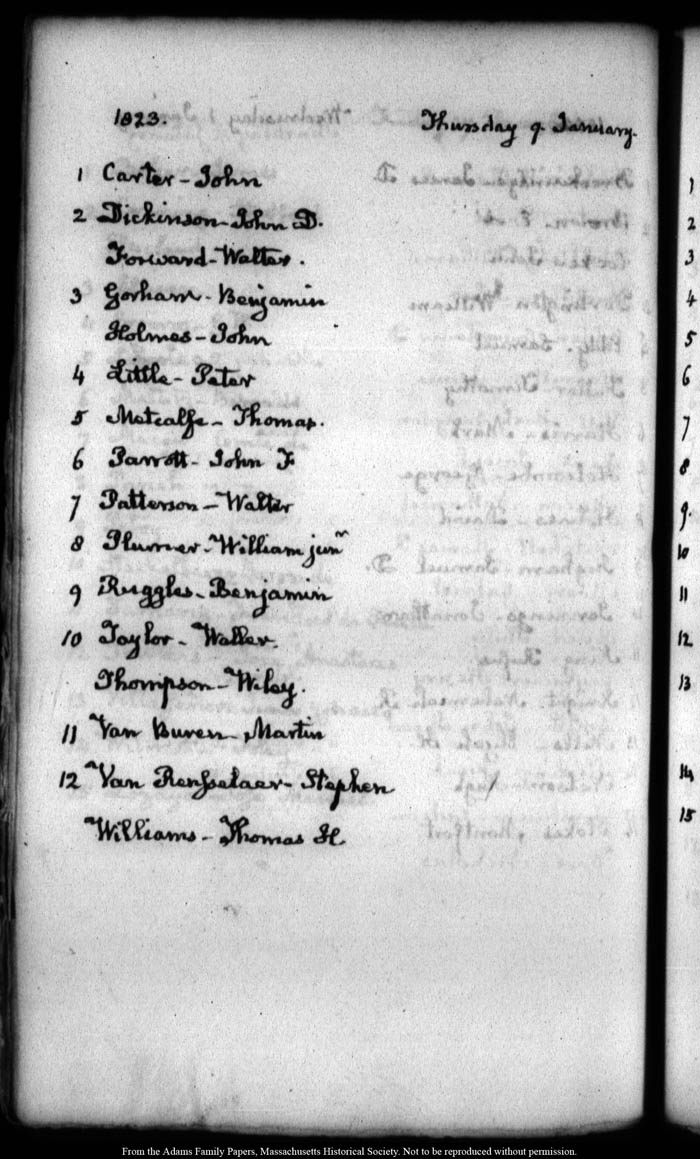 1823. Thursday 9. January.
1 Carter - John
2 Dickinson - John D.
Forward - Walter.
3 Gorham - Benjamin
Holmes - John
4 Little - Peter
5 Metcalfe - Thomas.
6 Parrott - John F
7 Patterson - Walter
8 Plumer - William junr
9 Ruggles - Benjamin
10 Taylor - Waller.
Thompson - Wiley.
11 Van Buren - Martin
12 Van Rensselaer - Stephen
Williams - Thomas H.
1
2
3
4
5
6
7
8
9.
10
11
12
13
14
15
From the Adams Family Papers, Massachusetts Historical Society. Not to be reproduced without permission.